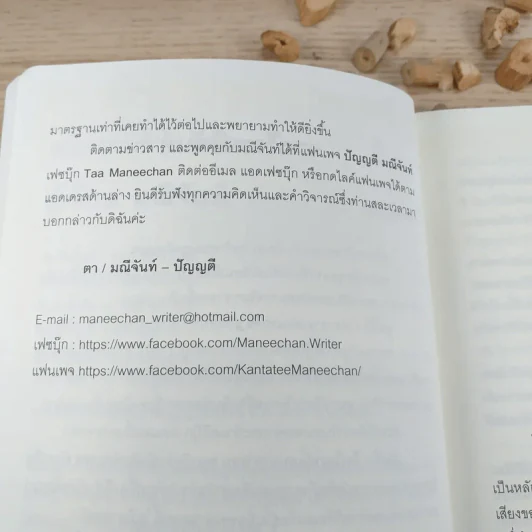 มาตรฐานเท่าที่เคยทำได้ไว้ต่อไปและพยายามทำให้ดียิ่งขึ้น
ติดตามข่าวสาร และพูดคุยกับมณีจันท์ได้ที่แฟนเพจ ปัญญตี มณีจันท์
เฟซบุ๊ก Taa Maneechan ติดต่ออีเมล แอดเฟซบุ๊ก หรือกดไลค์แฟนเพจได้ตาม
แอดเดรสด้านล่าง ยินดีรับฟังทุกความคิดเห็นและคำวิจารณ์ซึ่งท่านสละเวลามา
บอกกล่าวกับดิฉันค่ะ
ตา / มณีจันท์ – ปัญญตี
E-mail : maneechan_writer@hotmail.com
เฟซบุ๊ก : https://www.facebook.com/Maneechan.Writer
แฟนเพจ https://www.facebook.com/KantateeManeechan/
เป็นหลั
เสียงขอ